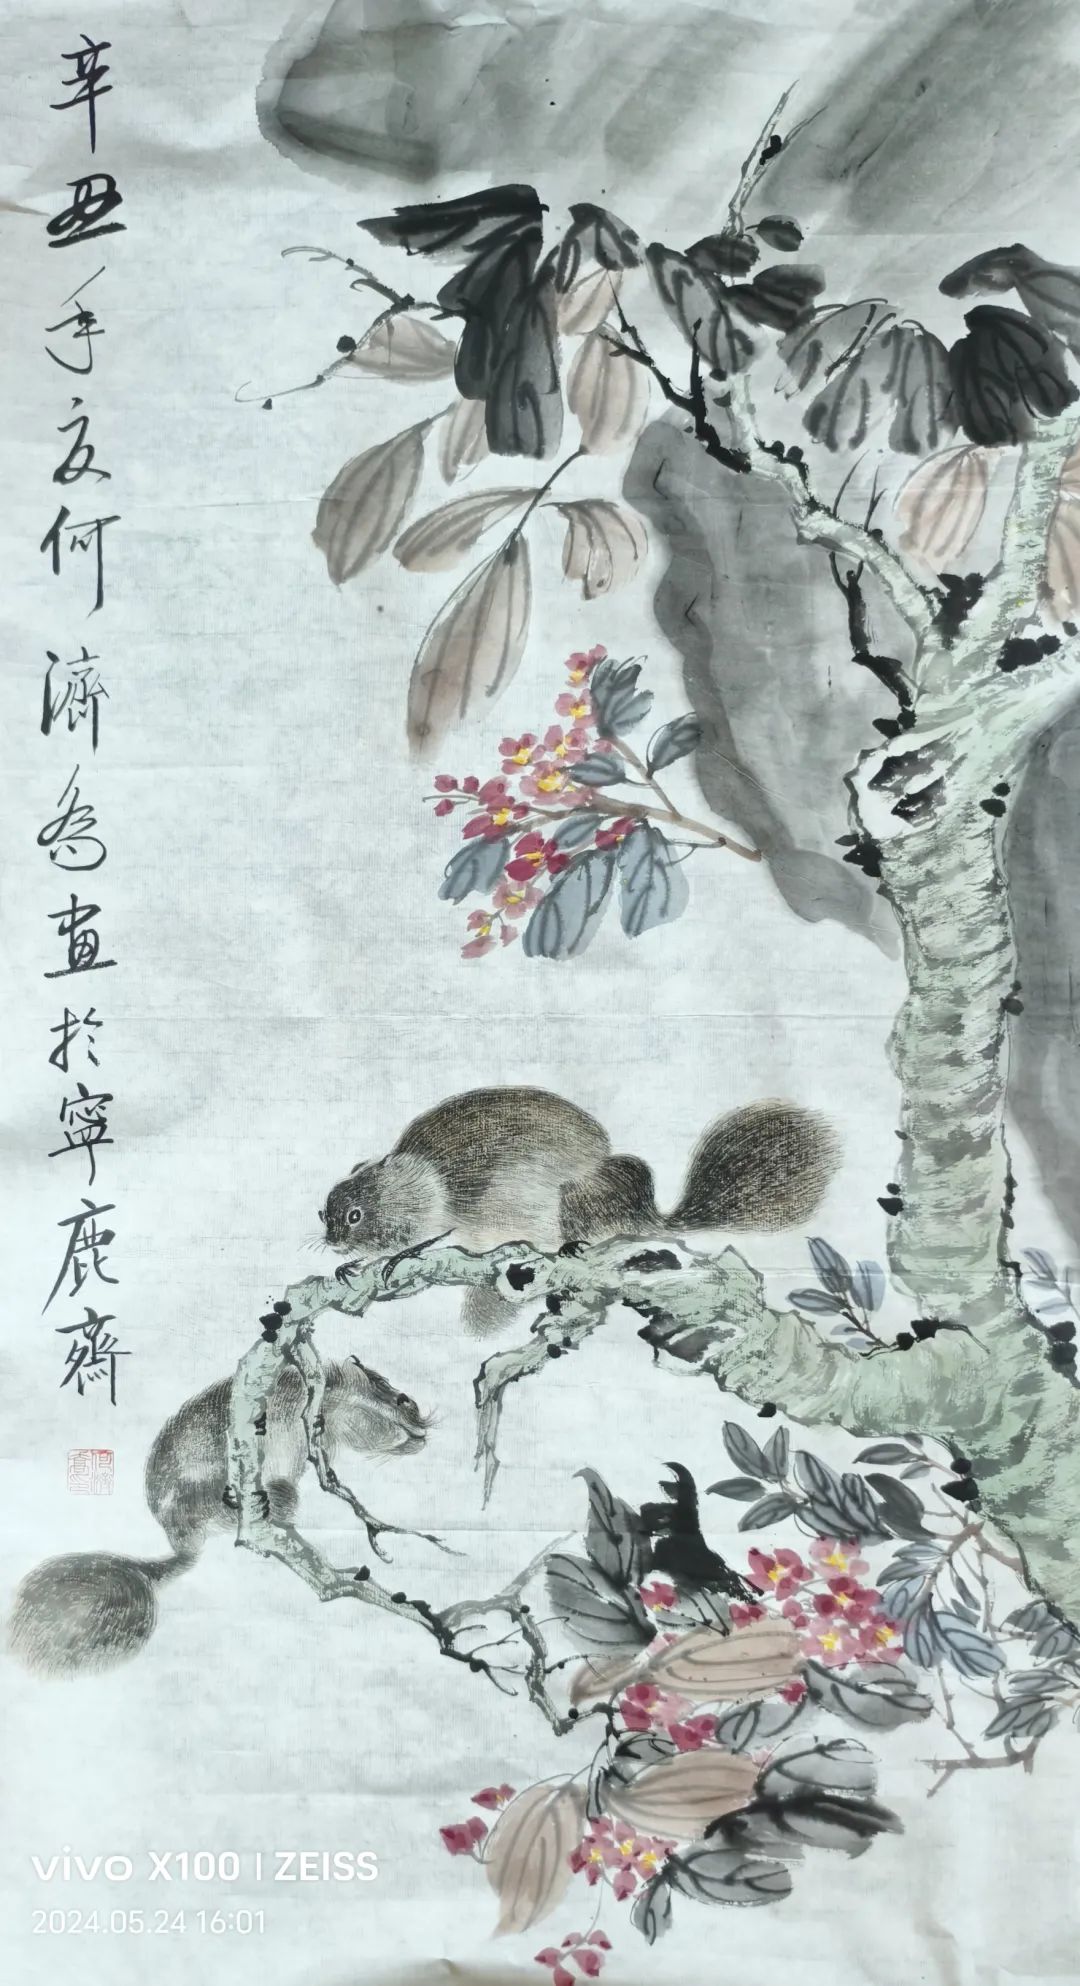 辛丑年夏何濟為畫於寧鹿齋
vivo X100 | ZEISS
2024.05.24 16:01